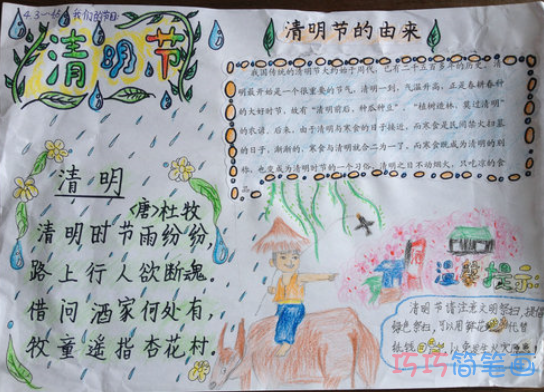 4.3 我们的节日
清明节
清明节的由来
我国传统的清明节大约始于周代，已有二千五百多年的历史。清
明最开始是一个很重要的节气，清明一到，气温升高，正是春耕春种
的大好时节，故有“清明前后，种瓜种豆”。“植树造林，莫过清明”
的农谚。后来，由于清明与寒食的日子接近，而寒食是民间禁火扫墓
的日子，渐渐的，寒食与清明就合二为一了，而寒食既成为清明的别
称，也变成为清明时节的一个习俗，清明之日不动烟火，只吃凉的食
品。
清明
〈唐〉杜牧
清明时节雨纷纷，
路上行人欲断魂。
借问酒家何处有，
牧童遥指杏花村。
温馨提示：
清明节请注意文明祭扫，提倡
绿色祭扫，可以用鲜花代替
纸钱，以免发生火灾
巧巧简笔画